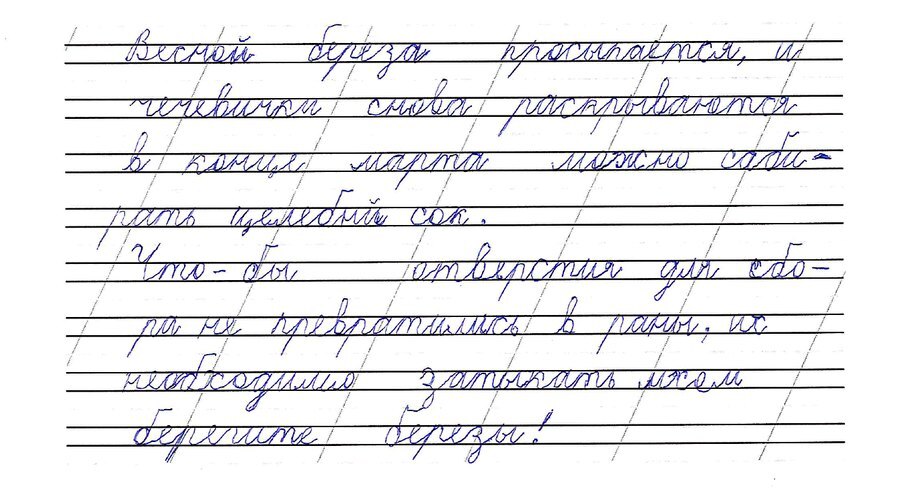 Весной береза просыпается, и
чечевички снова раскрываются
в конце марта можно саби-
рать целебий сок.
Что-бы отверстия для сбо-
ра не превратились в раны, их
необходимо затыкать мхом
берегите березы!